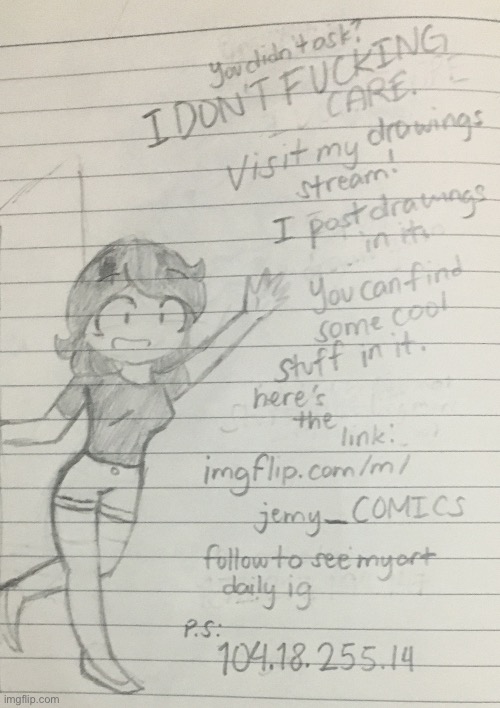 you didn't ask?
I DON'T FUCKING
CARE.
Visit my drawings
stream!
I post drawings
in it.
You can find
some cool
stuff in it.
here's
the
link:
imgflip.com/m/
jemy_COMICS
follow to see my art
daily ig
P.S:
104.18.255.14
imgflip.com